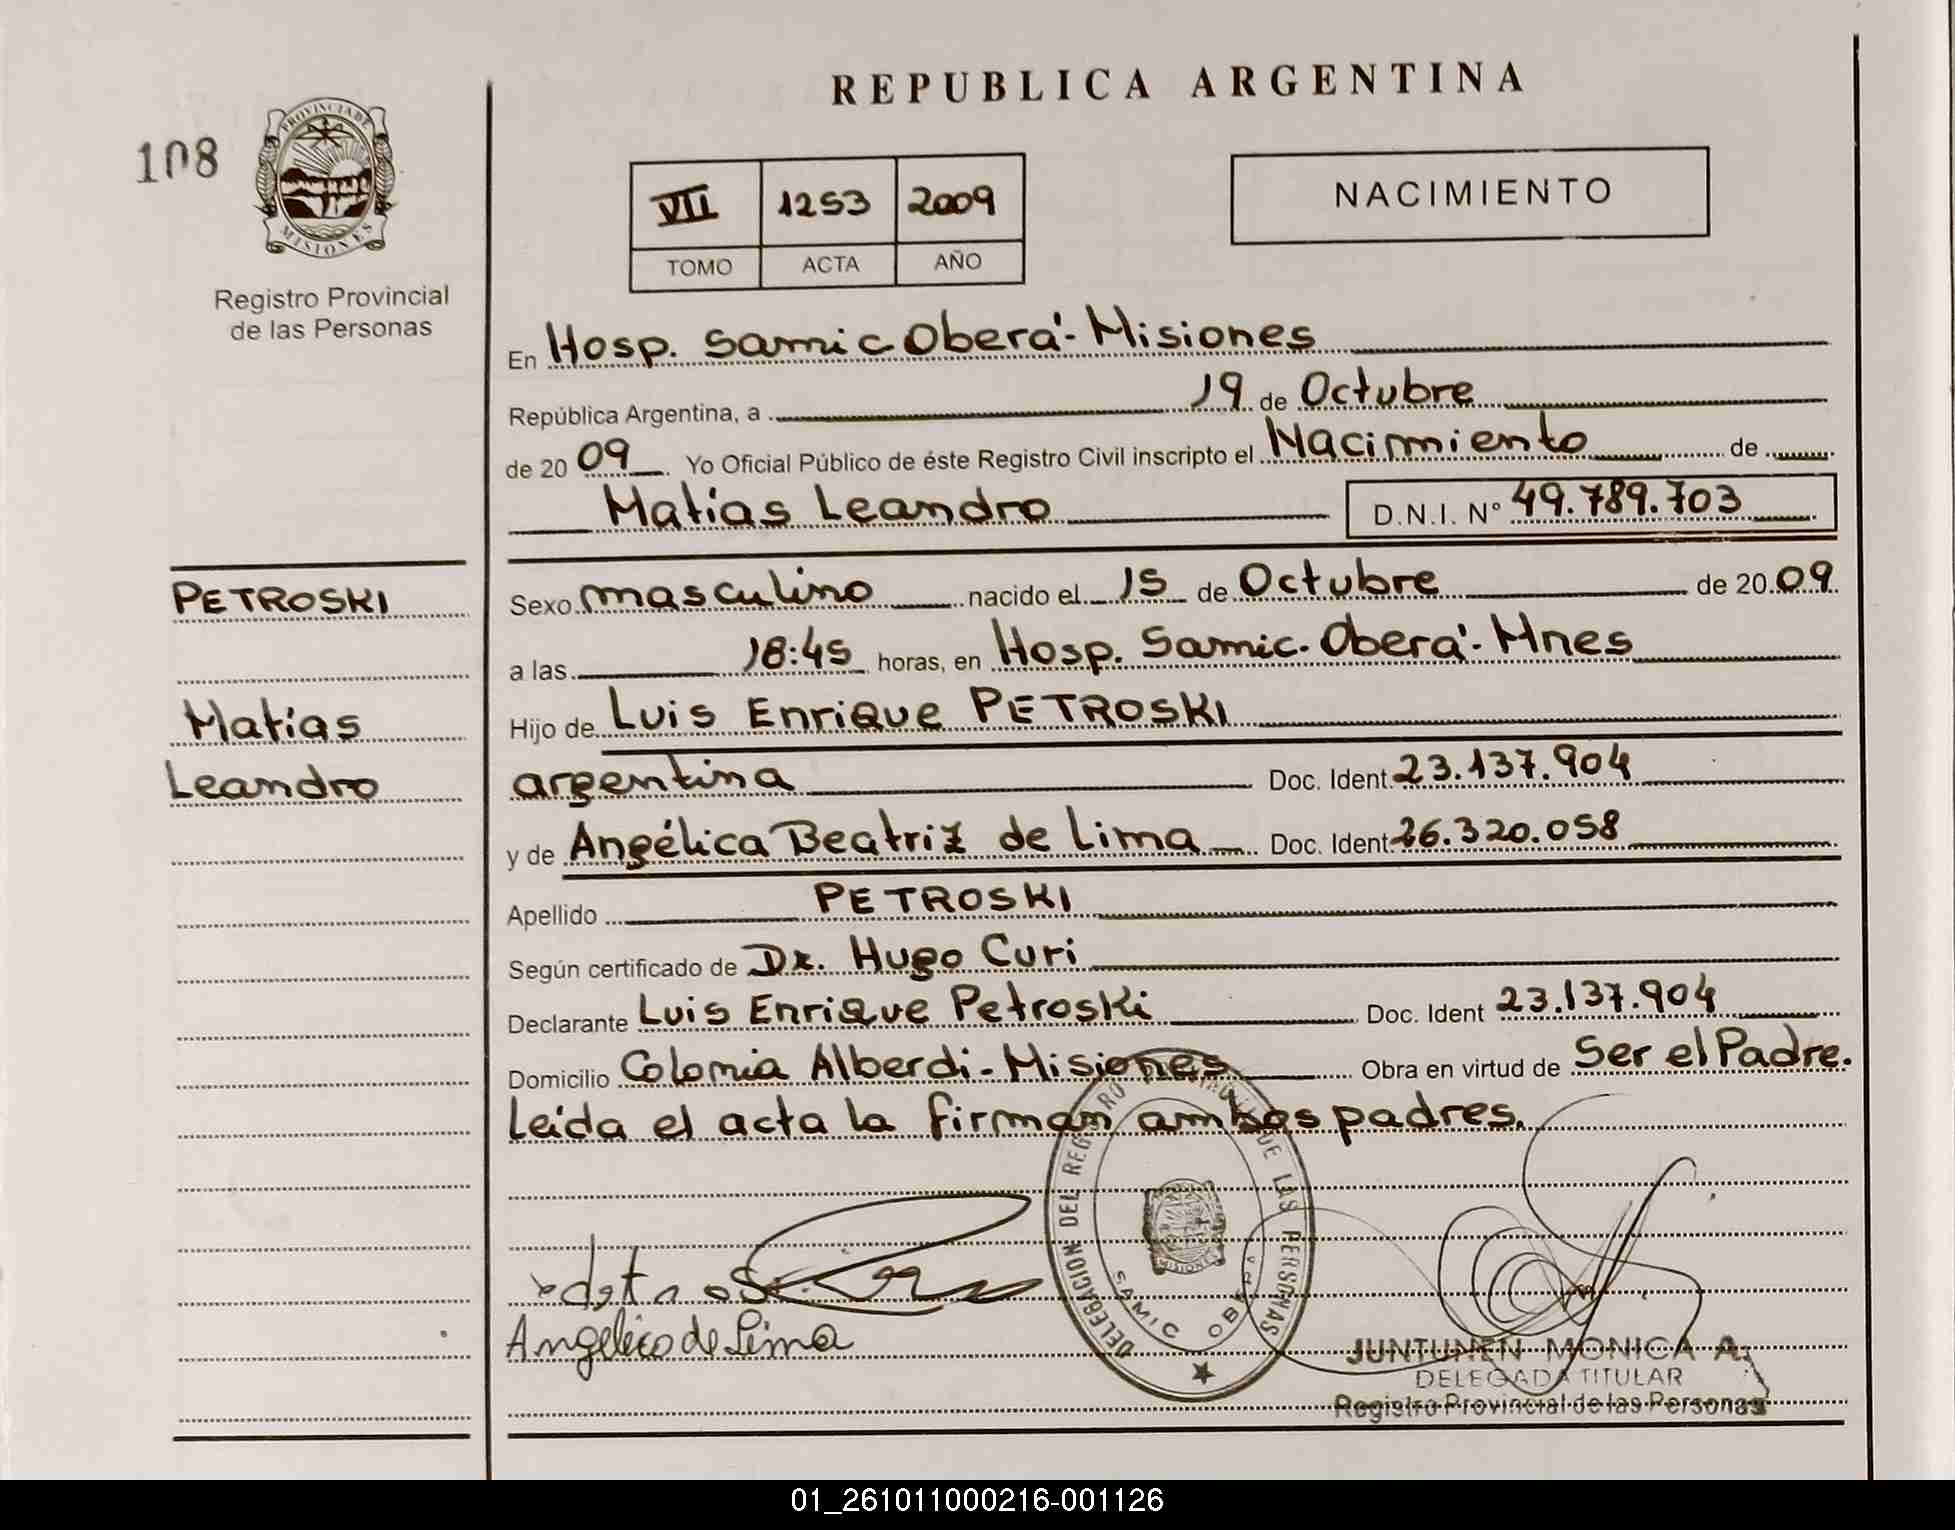 REPUBLICA ARGENTINA
108
PROVINCIA DE
MISIONES
Registro Provincial
de las Personas
VII 1253 2009
TOMO ACTA AÑO
NACIMIENTO
En Hosp. Samic Oberá - Misiones
República Argentina, a 19 de Octubre
de 20 09 . Yo Oficial Público de éste Registro Civil inscripto el Nacimiento de
Matías Leandro D.N.I. N° 49.789.703
PETROSKI
Matías
Leandro
Sexo masculino nacido el 15 de Octubre de 20 09.
a las 18:45 horas, en Hosp. Samic. Oberá - Mnes
Hijo de Luis Enrique PETROSKI
argentina Doc. Ident. 23.137.904
y de Angélica Beatriz de Lima Doc. Ident. 26.320.058
Apellido PETROSKI
Según certificado de Dr. Hugo Curi
Declarante Luis Enrique Petroski Doc. Ident 23.137.904
Domicilio Colonia Alberdi - Misiones Obra en virtud de Ser el Padre.
Leída el acta la firman ambos padres.
DELEGACION DEL REGISTRO DE LAS PERSONAS
MISIONES
SAMIC OBERA
Angelica de Lima
JUNTUNEN MONICA A.
DELEGADA TITULAR
Registro Provincial de las Personas
01_261011000216-001126